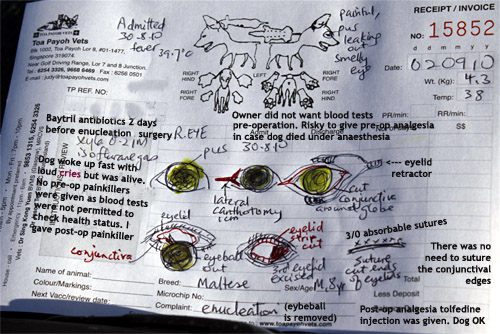 Toa Payoh Vets
Blk 1002, Toa Payoh Lor 8, #01-1477,
Singapore 319074
Near Golf Driving Range, Lor 7 and 8 Junction.
Tel: 6254 3326, 9668 6469 Fax: 6256 0501
E-mail: judy@toapayohvets.com
Admitted
30-8-10
fever 39.7°C
RIGHT HIND
LEFT
RIGHT HIND
RIGHT FORE
RIGHT FORE
painful,
pus
leaking
out
smelly
eye
RECEIPT / INVOICE
NO: 15852
d d m m y y
Date: 020910
Wt. (Kg): 4.3
Temp: 38
TP REF. NO:
PR/RR:
RR/min:
S$
Baytril antibiotics 2 days
before enucleation surgery
R. EYE
pus 30-8-10
Owner did not want blood tests
pre-operation. Risky to give pre-op analgesia
in case dog died under anaesthesia
Dog woke up fast with
loud cries but was alive.
No pre-op painkillers
were given as blood tests
were not permitted to
check health status. I
gave post-op painkiller
eyelid
retractor
lateral
canthotomy
1cm
cut
conjunctiva
around globe
eyelid
conjunctiva
eyeball
out
eyelid
strip
cut
3rd eyelid
excised
3/0 absorbable sutures
suture
cut ends
of eyelids
There was no
need to suture
the conjunctival
edges
Name of animal:
Colour/Markings:
Next Vacc/review date:
Breed: Maltese
Sex/Age: M, 8 yr
Microchip No:
Complaint: enucleation
(eybeball
is removed)
Less Deposit
www.toapayohvets.com
Post-op analgesia tolfedine
injection was given. Dog OK